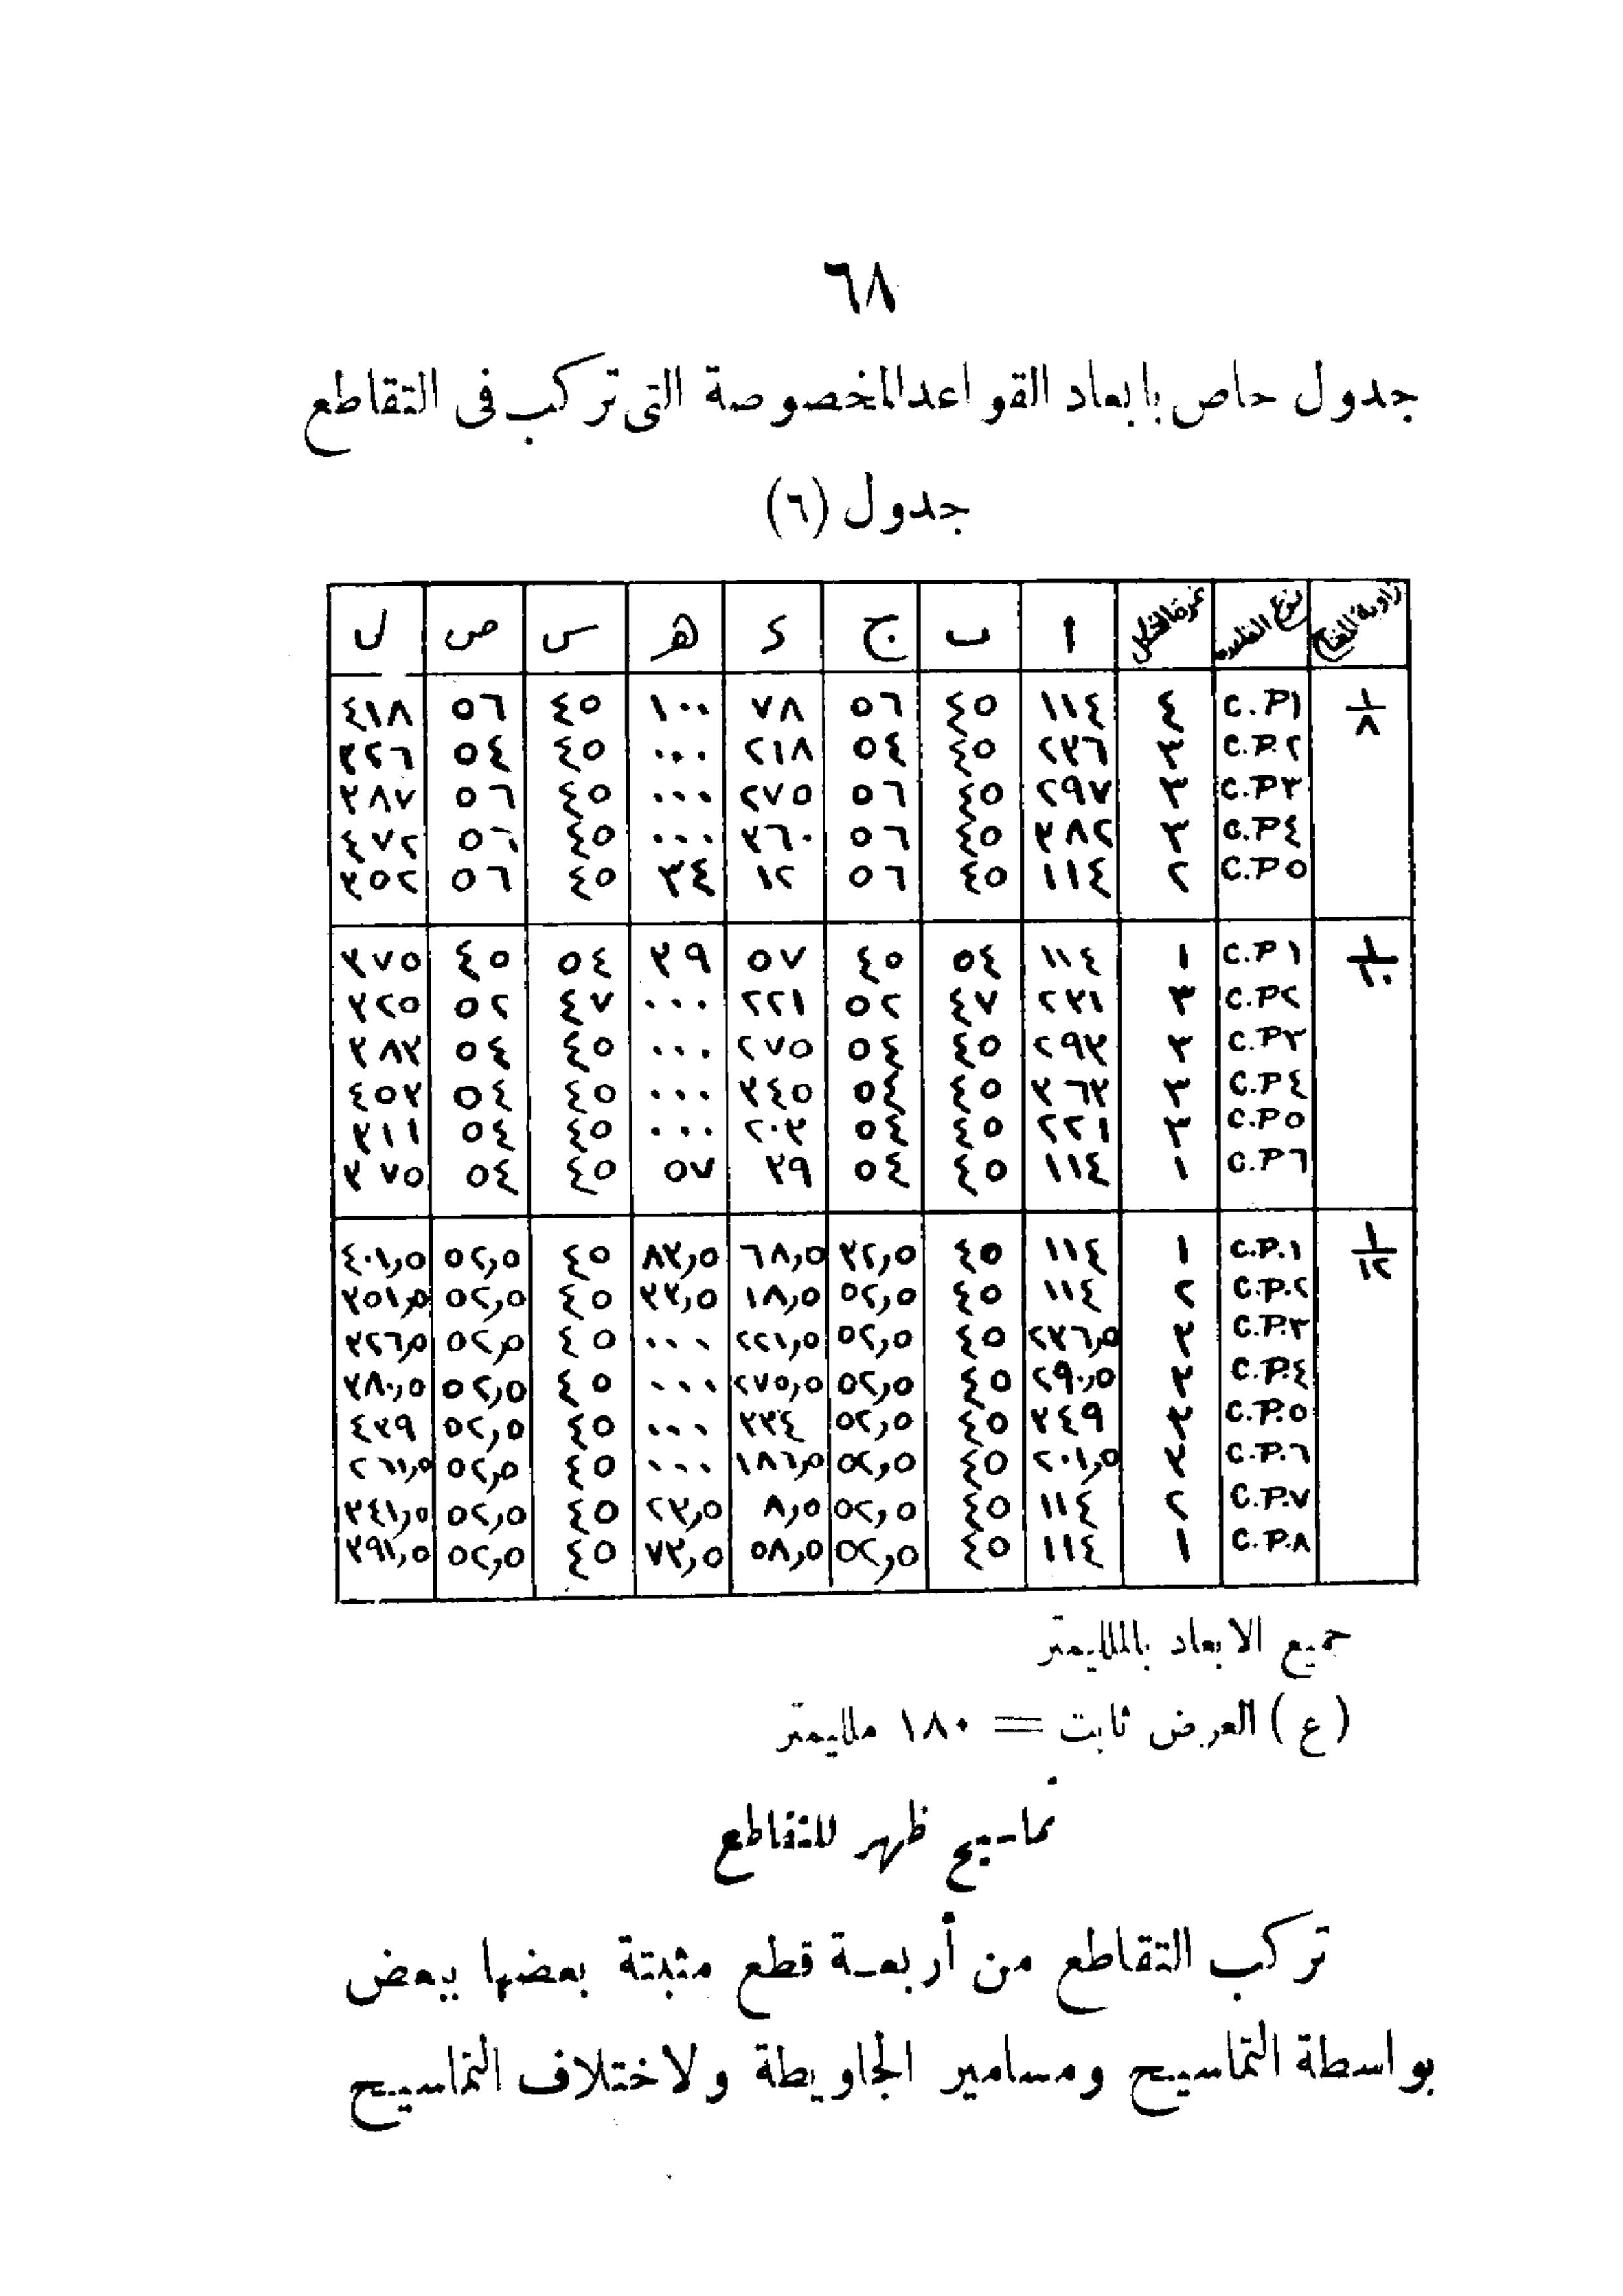 ٦٨
جدول خاص بابعاد القواعد المخصوصة التى تركب فى التقاطع
جدول (٦)
زاوية المفتاح نوع القاعدة نمرة الشكل ا ب ج د ه س ص ل
١/٨ C.P١ ٤ ١١٤ ٤٥ ٥٦ ٧٨ ١٠٠ ٤٥ ٥٦ ٤١٨
C.P.٢ ٣ ٢٣٦ ٤٥ ٥٤ ٢١٨ ... ٤٥ ٥٤ ٣٢٦
C.P٣ ٣ ٢٩٧ ٤٥ ٥٦ ٢٧٥ ... ٤٥ ٥٦ ٣٨٧
C.P٤ ٣ ٣٨٢ ٤٥ ٥٦ ٣٦٠ ... ٤٥ ٥٦ ٤٧٢
C.P٥ ٢ ١١٤ ٤٥ ٥٦ ١٢ ٣٤ ٤٥ ٥٦ ٣٥٢
١/١٠ C.P١ ١ ١١٤ ٥٤ ٤٥ ٥٧ ٣٩ ٥٤ ٤٥ ٣٧٥
C.P٢ ٣ ٢٣١ ٤٧ ٥٢ ٢٢١ ... ٤٧ ٥٢ ٣٢٥
C.P٣ ٣ ٢٩٣ ٤٥ ٥٤ ٢٧٥ ... ٤٥ ٥٤ ٣٨٣
C.P٤ ٣ ٣٦٣ ٤٥ ٥٤ ٣٤٥ ... ٤٥ ٥٤ ٤٥٣
C.P٥ ٣ ٢٢١ ٤٥ ٥٤ ٢٠٣ ... ٤٥ ٥٤ ٣١١
C.P٦ ١ ١١٤ ٤٥ ٥٤ ٣٩ ٥٧ ٤٥ ٥٤ ٣٧٥
١/١٢ C.P.١ ١ ١١٤ ٤٥ ٣٢,٥ ٦٨,٥ ٨٣,٥ ٤٥ ٥٢,٥ ٤٠١,٥
C.P.٢ ٢ ١١٤ ٤٥ ٥٢,٥ ١٨,٥ ٣٣,٥ ٤٥ ٥٢,٥ ٣٥١,٥
C.P.٣ ٣ ٢٣٦,٥ ٤٥ ٥٢,٥ ٢٢١,٥ ... ٤٥ ٥٢,٥ ٣٢٦,٥
C.P.٤ ٣ ٢٩٠,٥ ٤٥ ٥٢,٥ ٢٧٥,٥ ... ٤٥ ٥٢,٥ ٣٨٠,٥
C.P.٥ ٣ ٣٤٩ ٤٥ ٥٢,٥ ٣٣٤ ... ٤٥ ٥٢,٥ ٤٣٩
C.P.٦ ٣ ٢٠١,٥ ٤٥ ٥٢,٥ ١٨٦,٥ ... ٤٥ ٥٢,٥ ٢٦١,٥
C.P.٧ ٢ ١١٤ ٤٥ ٥٢,٥ ٨,٥ ٢٣,٥ ٤٥ ٥٢,٥ ٣٤١,٥
C.P.٨ ١ ١١٤ ٤٥ ٥٢,٥ ٥٨,٥ ٧٣,٥ ٤٥ ٥٢,٥ ٣٩١,٥
جميع الابعاد بالملليمتر
(ع) العرض ثابت = ١٨٠ ملليمتر
تماسيح ظهر للتقاطع
تركب التقاطع من أربعة قطع مثبتة بعضها ببعض
بواسطة التماسيح ومسامير الجاويطة ولاختلاف التماسيح